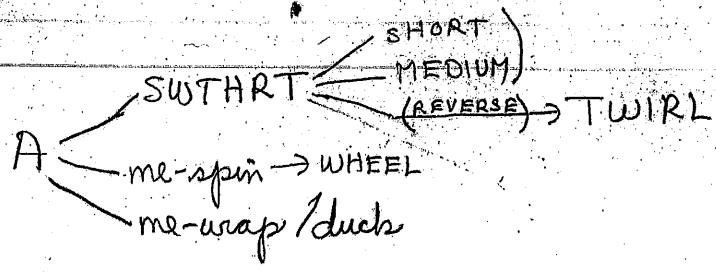 SHORT
SWTHRT MEDIUM
(REVERSE) → TWIRL
A
me-spin → WHEEL
me-wrap/duck